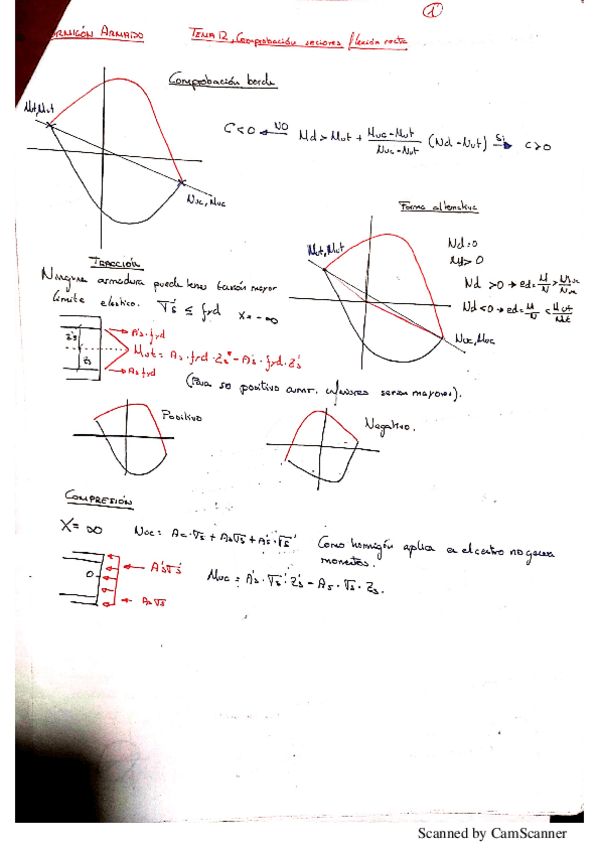 HORMIGÓN ARMADO
TEMA 12, Comprobación secciones flexión recta
Comprobación borde
Nut, Mut
C<0 NO Md > Mut + Muc-Mut / Nuc-Nut (Nd-Nut) Si C>0
Nuc, Muc
Forma alternativa
Nut, Mut
Nd=0
Nuc, Muc
TRACCIÓN
Ninguna armadura puede tener tensión mayor
límite elástico. σs' ≤ fyd x=-∞
A's·fyd
Zs'
Zs
Mut = As·fyd·Zs - A's·fyd·Zs'
As fyd
(Para so positivo armr. inferiores seran mayores).
Positivo
Negativo.
COMPRESIÓN
X=∞ Nuc= Ac·σs + Asσs + A's·σs' Como hormigón aplica en el centro no genera
momentos.
A'sσs'
0
Muc = A's·σs'·Zs' - As·σs·Zs.
Asσs
Scanned by CamScanner